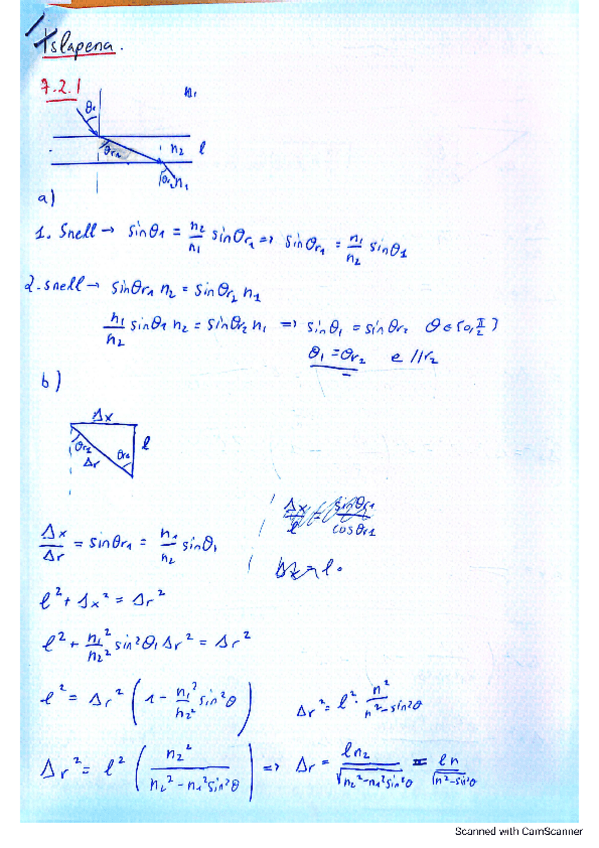 Islapena.
7.2.1
θ₁ n₁
θr₁ n₂ l
θr₂ n₁
a)
1. Snell → sinθ₁ = n₂/n₁ sinθr₁ => sinθr₁ = n₁/n₂ sinθ₁
2. snell → sinθr₁ n₂ = sinθr₂ n₁
n₁/n₂ sinθ₁ n₂ = sinθr₂ n₁ => sinθ₁ = sinθr₂ θ∈[0,π/2]
θ₁ = θr₂ e // r₂
b)
Δx
θr₁ θr₁ l
Δr
Δx/l = sinθr₁/cosθr₁
Δx/Δr = sinθr₁ = n₁/n₂ sinθ₁
Δx = l.
l² + Δx² = Δr²
l² + n₁²/n₂² sin²θ₁ Δr² = Δr²
l² = Δr² (1 - n₁²/n₂² sin²θ) Δr² = l² · n²/n²-sin²θ
Δr² = l² (n₂²/n₂²-n₁²sin²θ) => Δr = ln₂/√n₂²-n₁²sin²θ = ln/√n²-sin²θ
Scanned with CamScanner